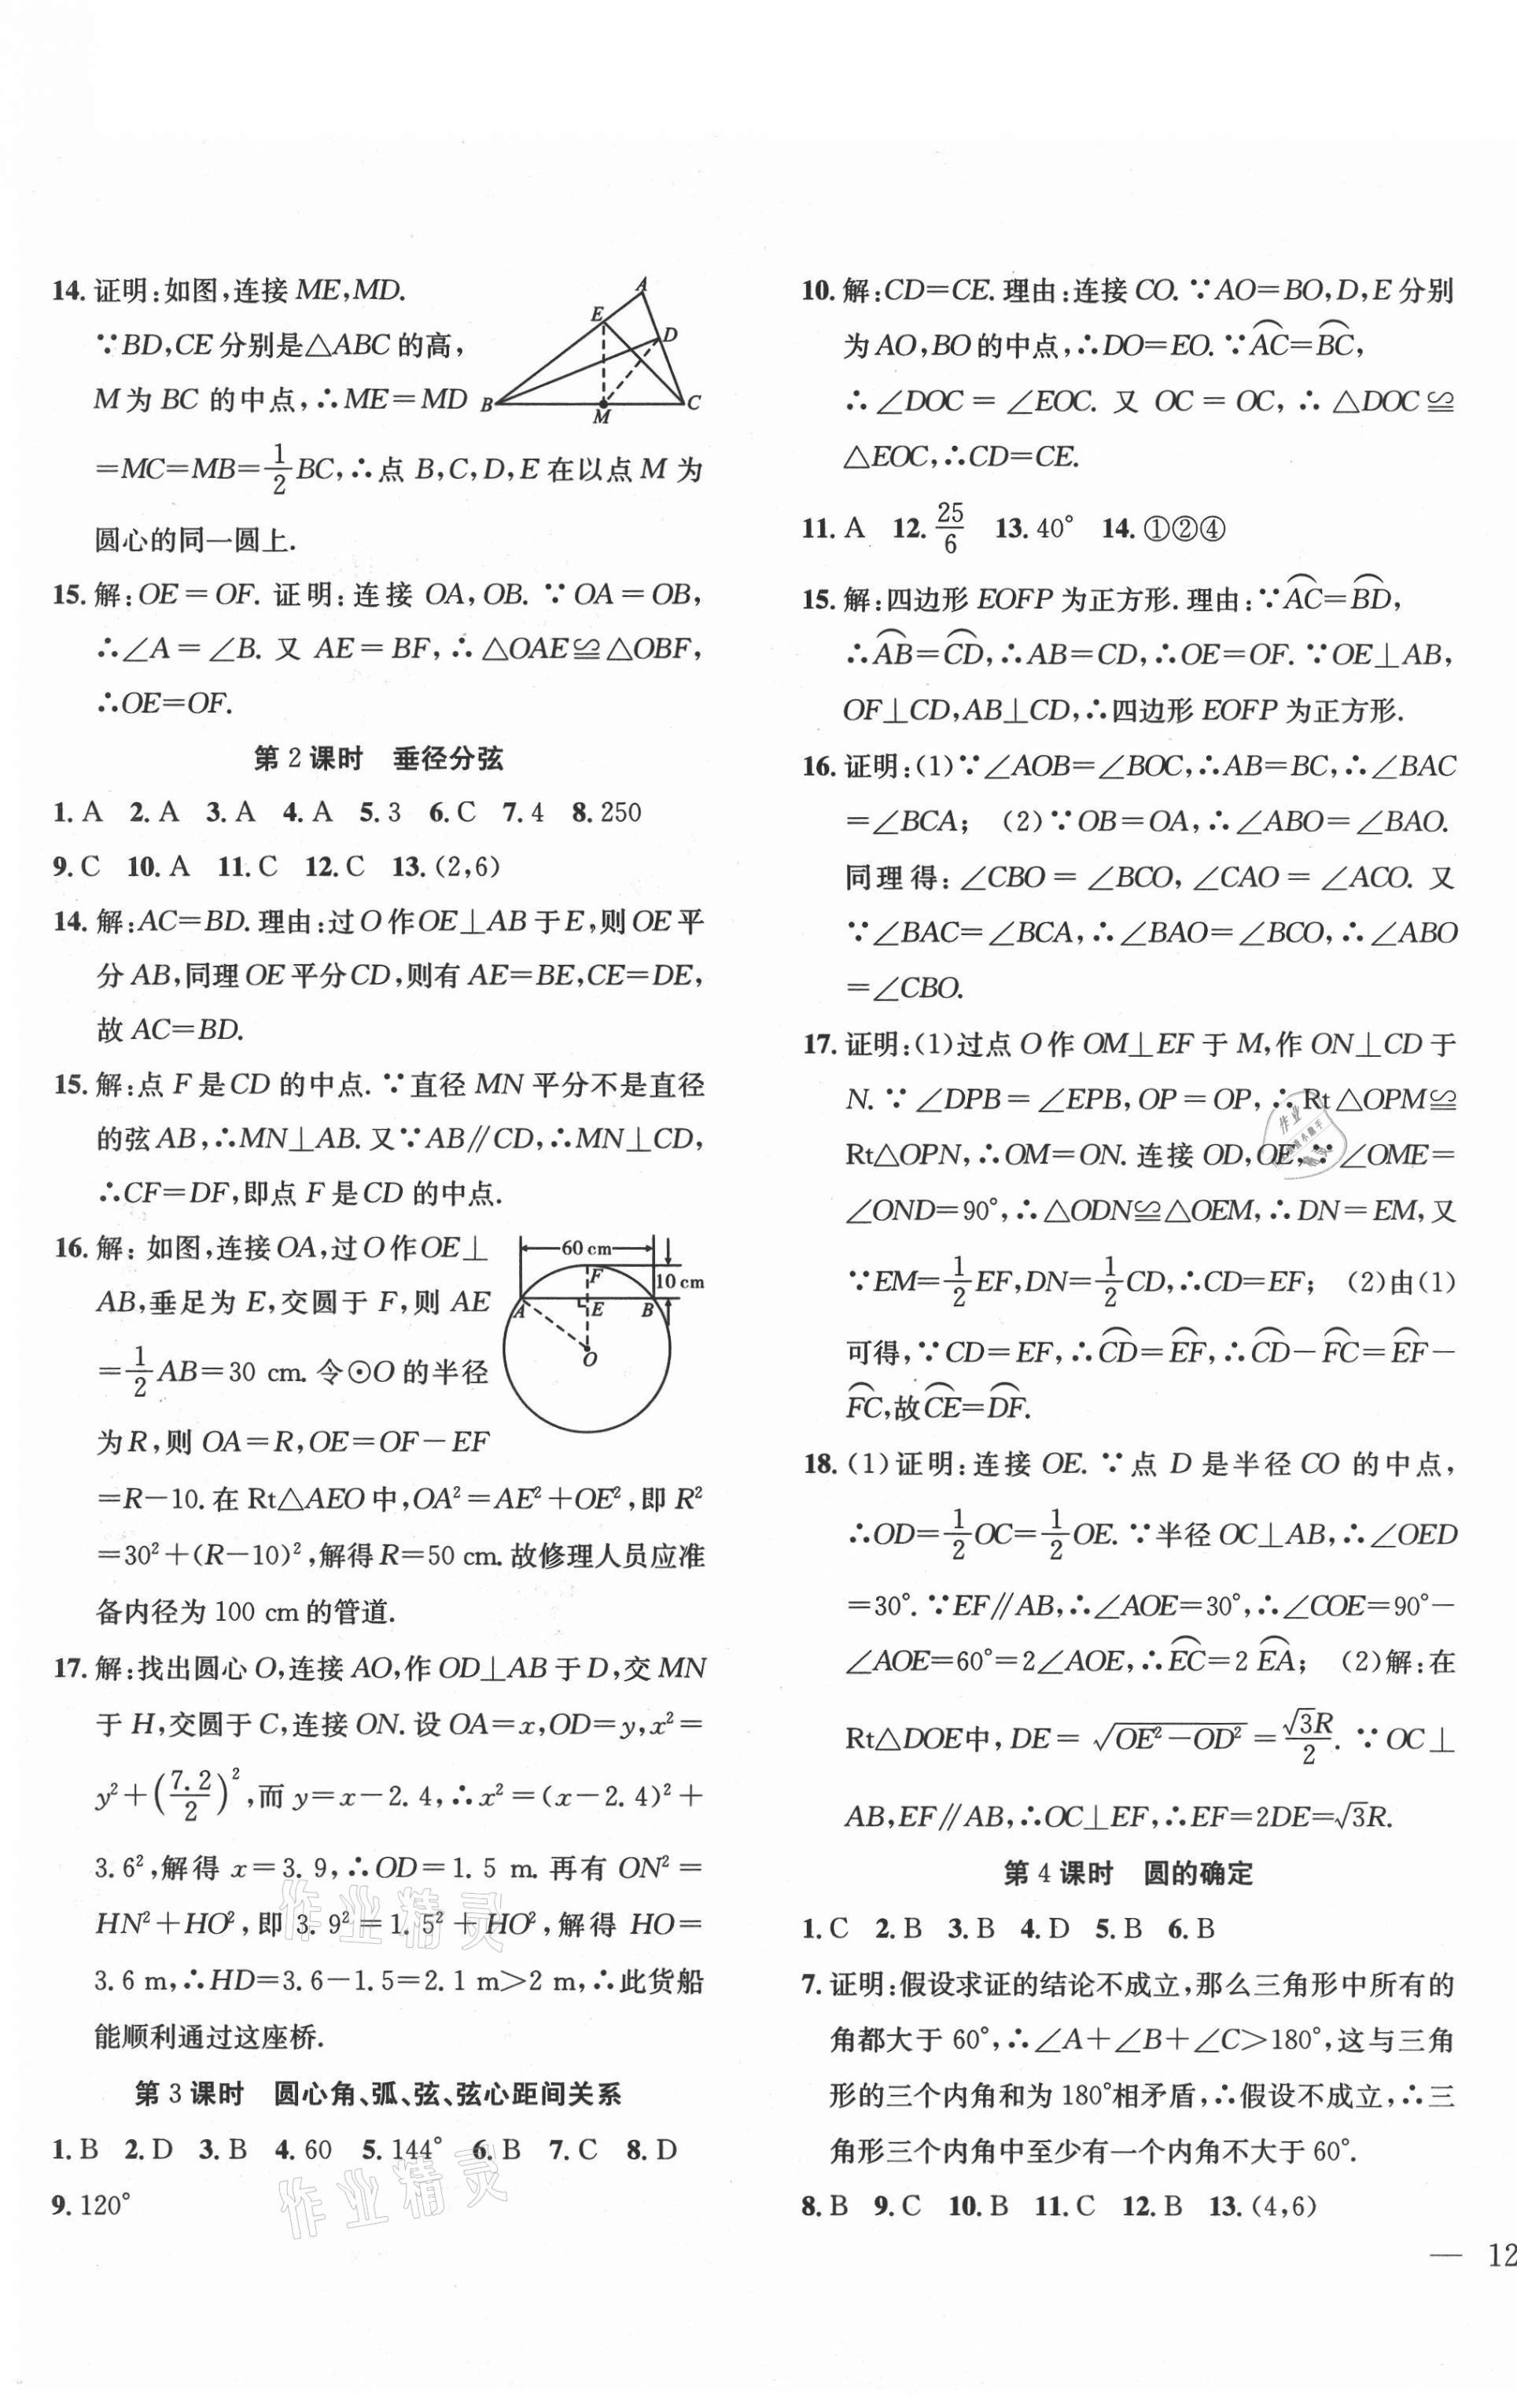 14. 证明:如图,连接ME,MD.
∵BD,CE分别是△ABC的高,
M为BC的中点,∴ME=MD
=MC=MB=1/2BC,∴点B,C,D,E在以点M为
圆心的同一圆上.
A
E
D
B
M
C
15. 解:OE=OF. 证明:连接OA,OB. ∵OA=OB,
∴∠A=∠B. 又AE=BF,∴△OAE≌△OBF,
∴OE=OF.
第2课时 垂径分弦
1. A 2. A 3. A 4. A 5. 3 6. C 7. 4 8. 250
9. C 10. A 11. C 12. C 13. (2,6)
14. 解:AC=BD. 理由:过O作OE⊥AB于E,则OE平
分AB,同理OE平分CD,则有AE=BE,CE=DE,
故AC=BD.
15. 解:点F是CD的中点. ∵直径MN平分不是直径
的弦AB,∴MN⊥AB. 又∵AB∥CD,∴MN⊥CD,
∴CF=DF,即点F是CD的中点.
16. 解:如图,连接OA,过O作OE⊥
AB,垂足为E,交圆于F,则AE
=1/2AB=30 cm. 令⊙O的半径
为R,则OA=R,OE=OF-EF
=R-10. 在Rt△AEO中,OA²=AE²+OE²,即R²
=30²+(R-10)²,解得R=50 cm. 故修理人员应准
备内径为100 cm的管道.
60 cm
10 cm
F
A
E
B
O
17. 解:找出圆心O,连接AO,作OD⊥AB于D,交MN
于H,交圆于C,连接ON. 设OA=x,OD=y,x²=
y²+(7.2/2)²,而y=x-2.4,∴x²=(x-2.4)²+
3.6²,解得x=3.9,∴OD=1.5 m. 再有ON²=
HN²+HO²,即3.9²=1.5²+HO²,解得HO=
3.6 m,∴HD=3.6-1.5=2.1 m>2 m,∴此货船
能顺利通过这座桥.
第3课时 圆心角、弧、弦、弦心距间关系
1. B 2. D 3. B 4. 60 5. 144° 6. B 7. C 8. D
9. 120°
作业精灵
作业精灵
10. 解:CD=CE. 理由:连接CO. ∵AO=BO,D,E分别
为AO,BO的中点,∴DO=EO. ∵⌒AC=⌒BC,
∴∠DOC=∠EOC. 又OC=OC,∴△DOC≌
△EOC,∴CD=CE.
11. A 12. 25/6 13. 40° 14. ①②④
15. 解:四边形EOFP为正方形. 理由:∵⌒AC=⌒BD,
∴⌒AB=⌒CD,∴AB=CD,∴OE=OF. ∵OE⊥AB,
OF⊥CD,AB⊥CD,∴四边形EOFP为正方形.
16. 证明:(1)∵∠AOB=∠BOC,∴AB=BC,∴∠BAC
=∠BCA; (2)∵OB=OA,∴∠ABO=∠BAO.
同理得:∠CBO=∠BCO,∠CAO=∠ACO. 又
∵∠BAC=∠BCA,∴∠BAO=∠BCO,∴∠ABO
=∠CBO.
17. 证明:(1)过点O作OM⊥EF于M,作ON⊥CD于
N. ∵∠DPB=∠EPB,OP=OP,∴Rt△OPM≌
Rt△OPN,∴OM=ON. 连接OD,OE,∵∠OME=
∠OND=90°,∴△ODN≌△OEM,∴DN=EM,又
∵EM=1/2EF,DN=1/2CD,∴CD=EF; (2)由(1)
可得,∵CD=EF,∴⌒CD=⌒EF,∴⌒CD-⌒FC=⌒EF-
⌒FC,故⌒CE=⌒DF.
18. (1)证明:连接OE. ∵点D是半径CO的中点,
∴OD=1/2OC=1/2OE. ∵半径OC⊥AB,∴∠OED
=30°. ∵EF∥AB,∴∠AOE=30°,∴∠COE=90°-
∠AOE=60°=2∠AOE,∴⌒EC=2⌒EA; (2)解:在
Rt△DOE中,DE=√(OE²-OD²)=√3R/2. ∵OC⊥
AB,EF∥AB,∴OC⊥EF,∴EF=2DE=√3R.
第4课时 圆的确定
1. C 2. B 3. B 4. D 5. B 6. B
7. 证明:假设求证的结论不成立,那么三角形中所有的
角都大于60°,∴∠A+∠B+∠C>180°,这与三角
形的三个内角和为180°相矛盾,∴假设不成立,∴三
角形三个内角中至少有一个内角不大于60°.
8. B 9. C 10. B 11. C 12. B 13. (4,6)
— 12